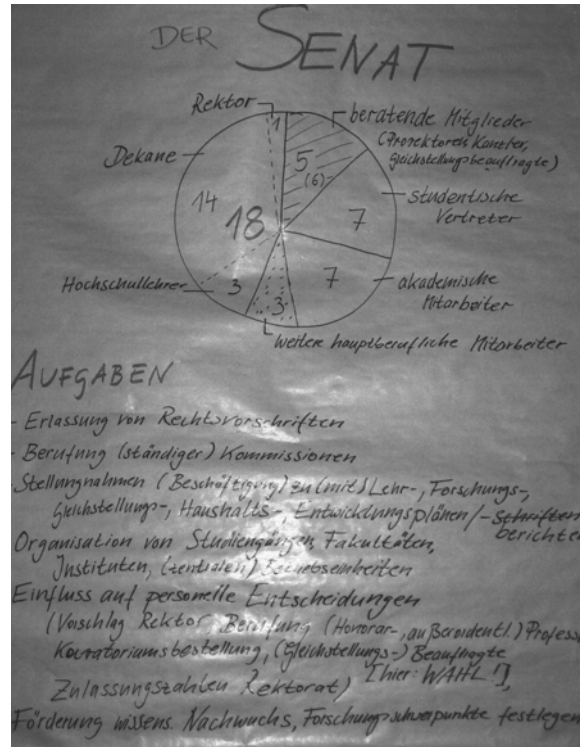 DER SENAT
Rektor
1
beratende Mitglieder
(Prorektoren, Kanzler,
Gleichstellungsbeauftragte)
Dekane
5
(6)
studentische
Vertreter
14
18
7
7
Hochschullehrer
3
3
akademische
Mitarbeiter
weitere hauptberufliche Mitarbeiter
AUFGABEN
- Erlassung von Rechtsvorschriften
- Berufung (ständiger) Kommissionen
- Stellungnahmen (Beschäftigung) zu (mit) Lehr-, Forschungs-,
Gleichstellungs-, Haushalts-, Entwicklungsplänen/-schriften
berichten
Organisation von Studiengängen, Fakultäten,
Instituten, (zentralen) Betriebseinheiten
Einfluss auf personelle Entscheidungen
(Vorschlag Rektor, Berufung (Honorar-, außerordentl.) Profess
Kuratoriumsbestellung, (Gleichstellungs-) Beauftragte
[hier: WAHL!],
Zulassungszahlen Rektorat)
Förderung wissens. Nachwuchs, Forschungsschwerpunkte festlegen